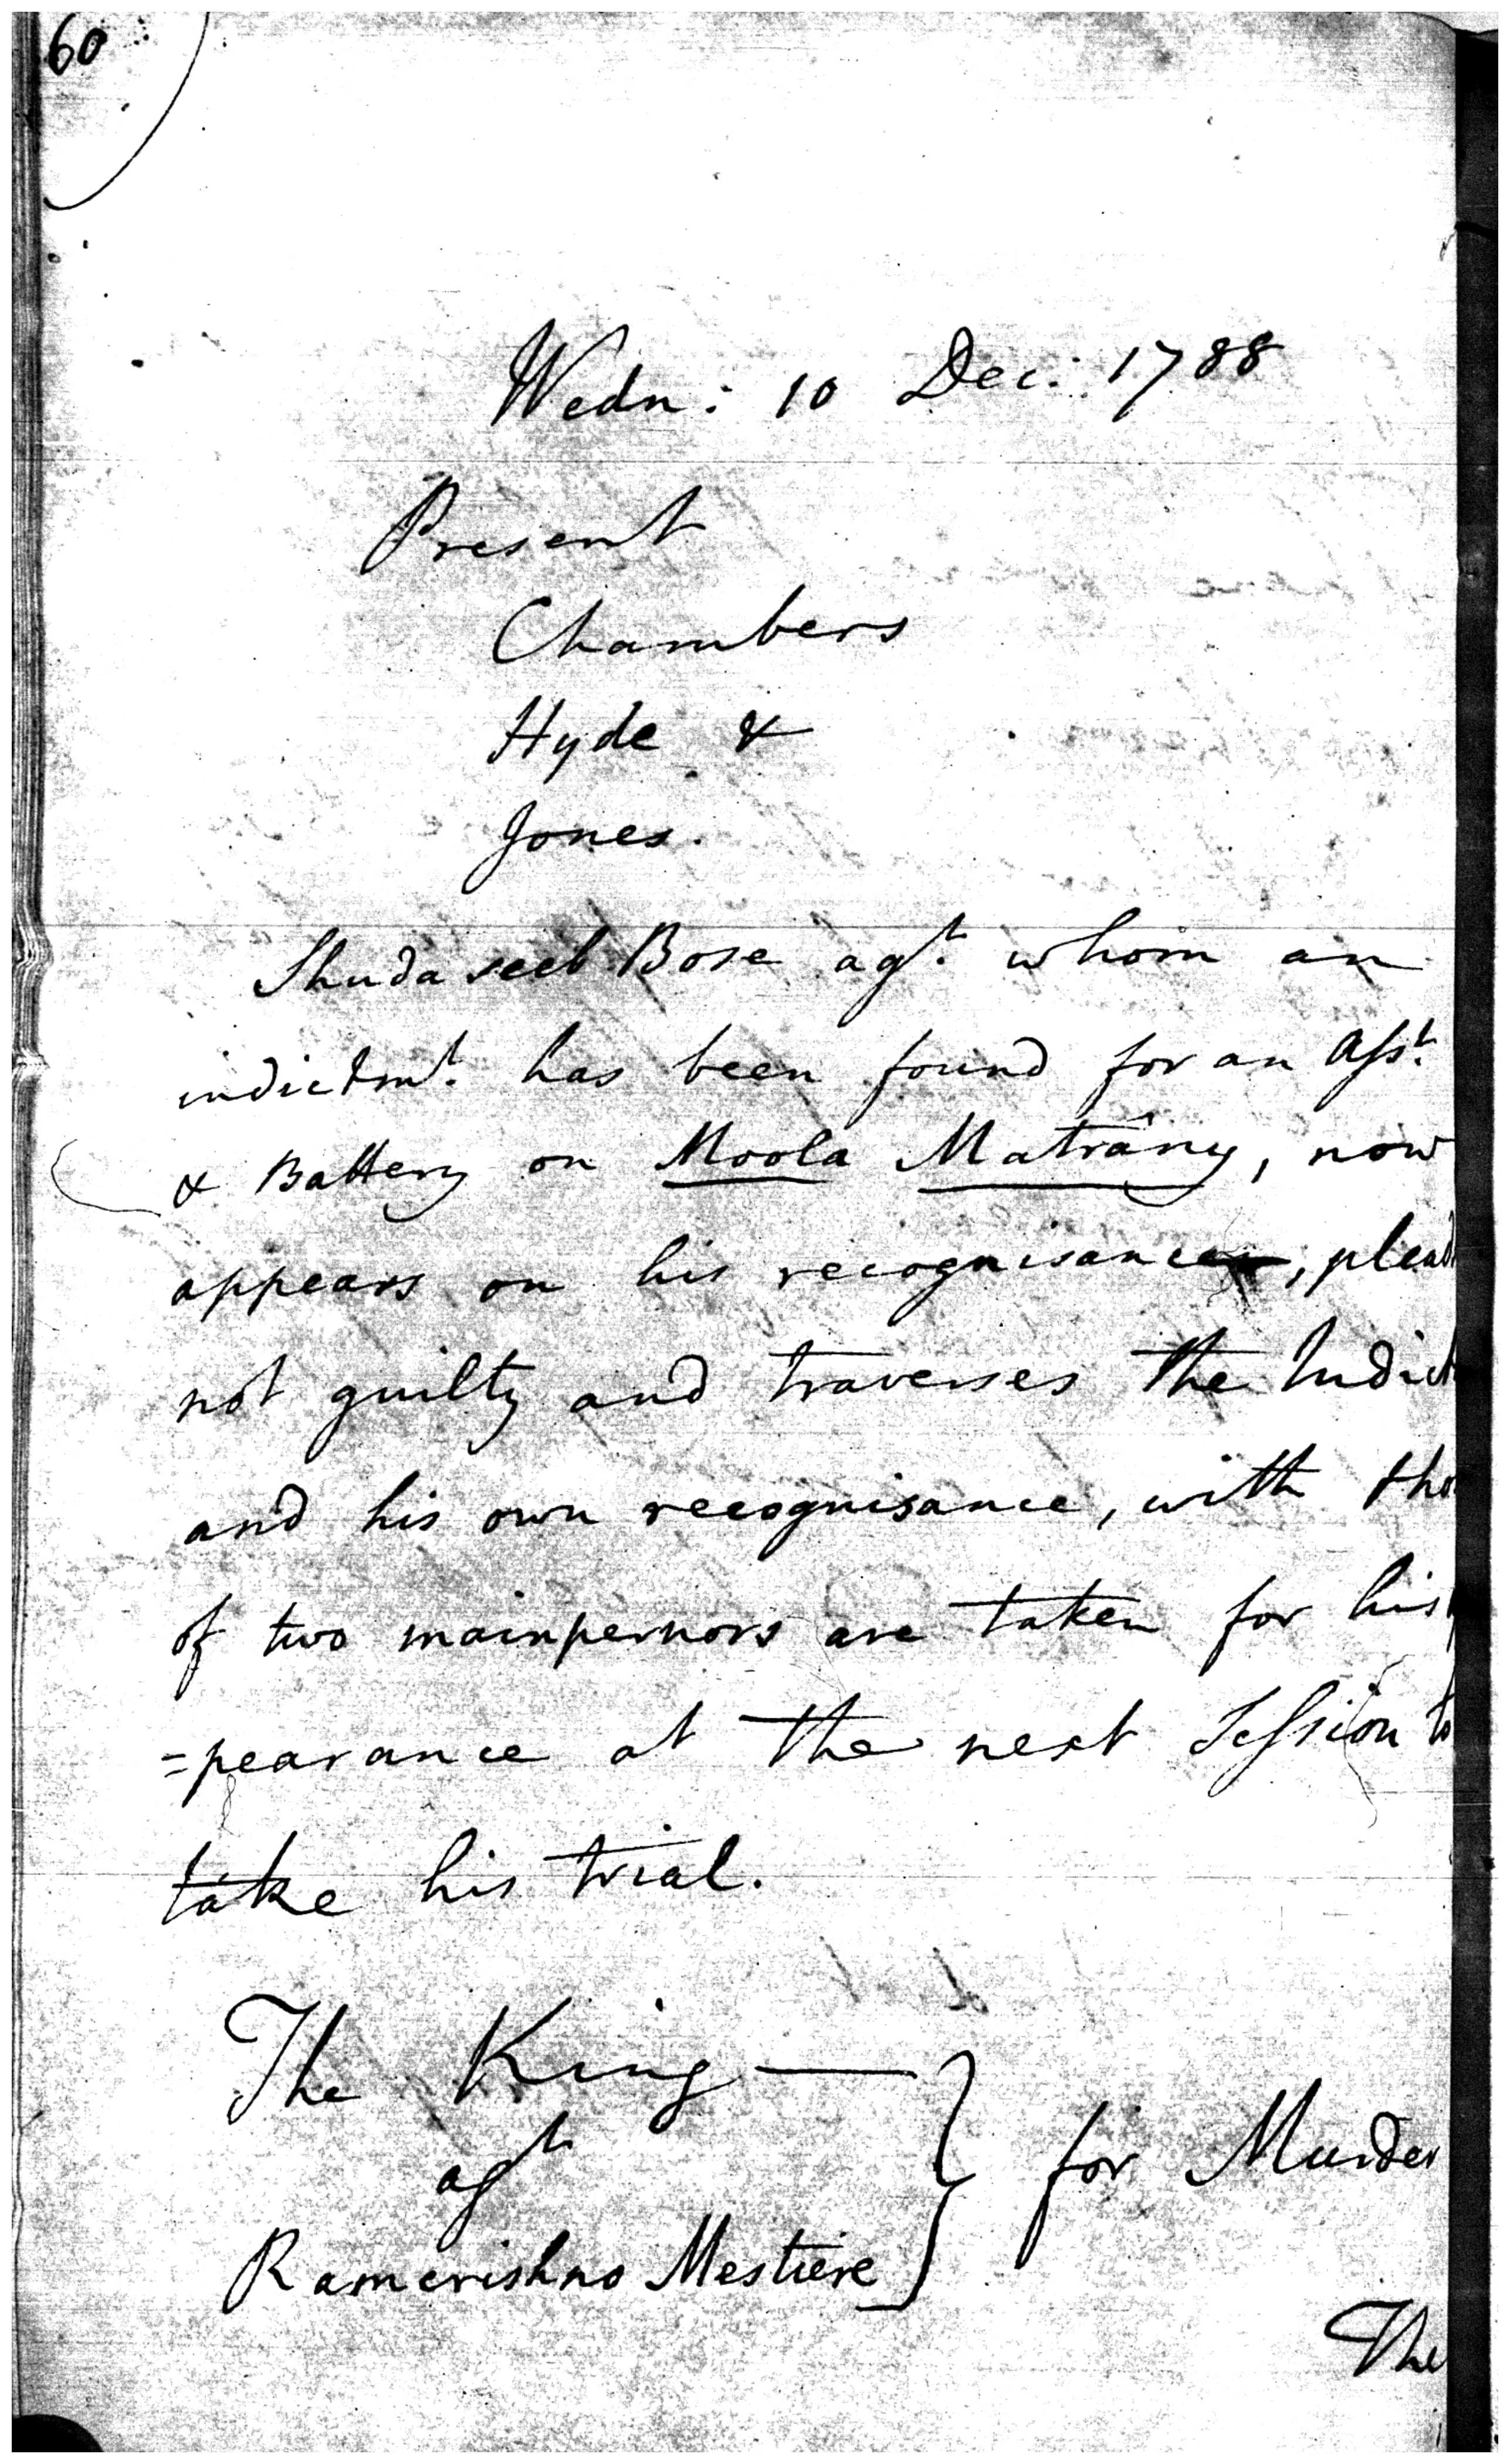 60
Wedn: 10 Dec: 1788
Present
Chambers
Hyde &
Jones.
Shudaseeb Bose agt. whom an
indictmt. has been found for an Asst.
& Battery on Moola Matrány, now
appears on his recognisance, plead
not guilty and traverses the Indict
and his own recognisance, with tho
of two mainpernors are taken for his
=pearance at the next Session to
take his trial.
The King
agt
Ramcrishno Mestiere } for Murder
The